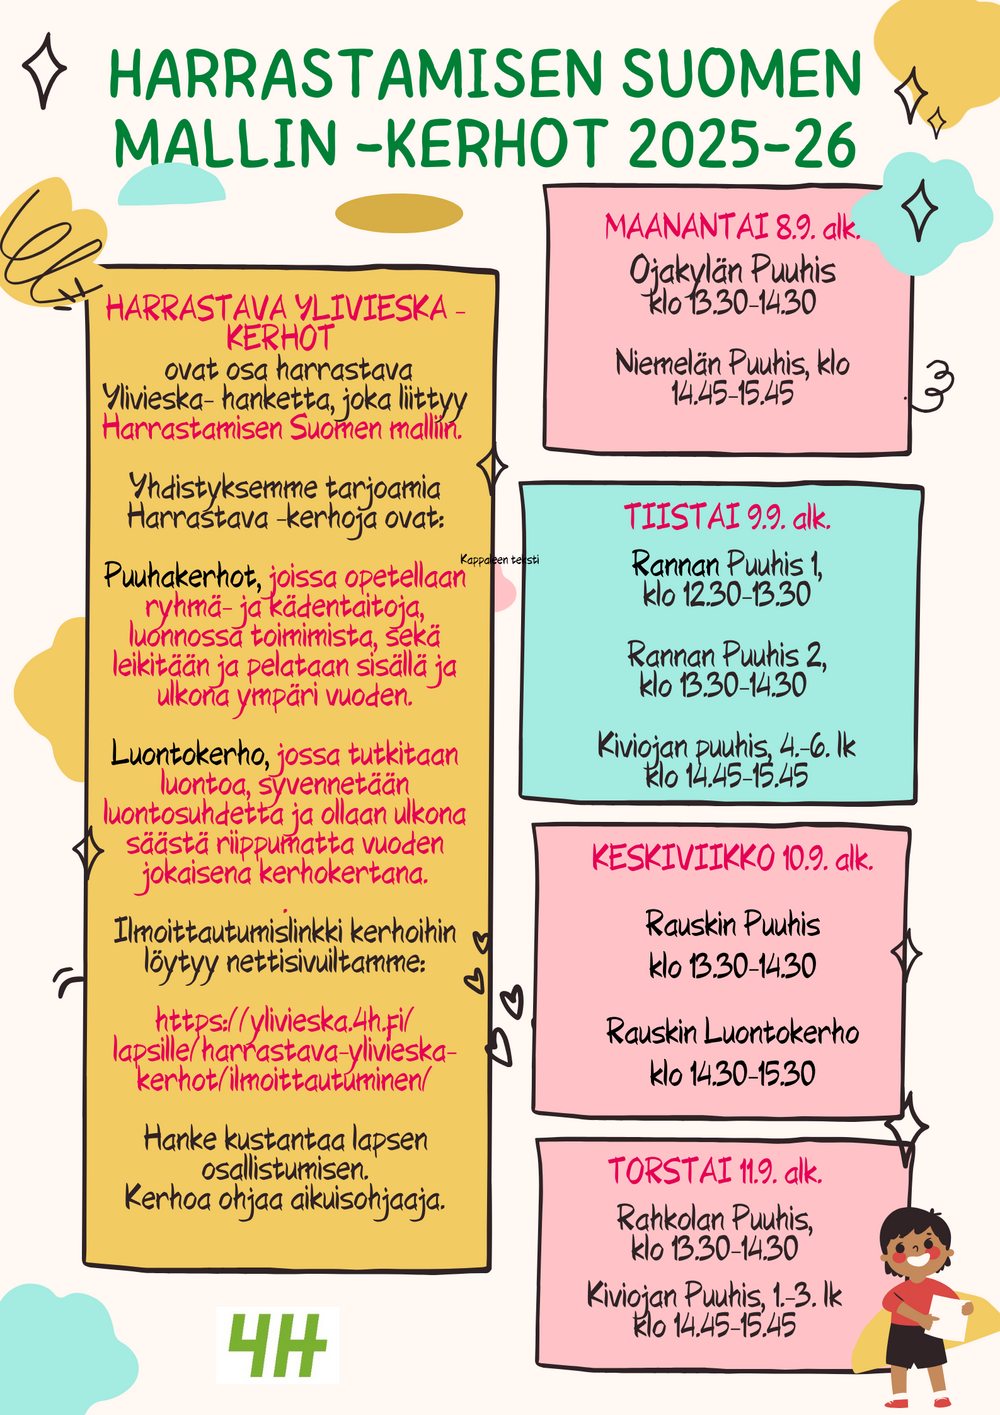 HARRASTAMISEN SUOMEN
MALLIN -KERHOT 2025-26
HARRASTAVA YLIVIESKA -
KERHOT
ovat osa harrastava
Ylivieska- hanketta, joka liittyy
Harrastamisen Suomen malliin.
Yhdistyksemme tarjoamia
Harrastava -kerhoja ovat:
Puuhakerhot, joissa opetellaan
ryhmä- ja kädentaitoja,
luonnossa toimimista, sekä
leikitään ja pelataan sisällä ja
ulkona ympäri vuoden.
Luontokerho, jossa tutkitaan
luontoa, syvennetään
luontosuhdetta ja ollaan ulkona
säästä riippumatta vuoden
jokaisena kerhokertana.
Ilmoittautumislinkki kerhoihin
löytyy nettisivuiltamme:
https://ylivieska.4h.fi/
lapsille/harrastava-ylivieska-
kerhot/ilmoittautuminen/
Hanke kustantaa lapsen
osallistumisen.
Kerhoa ohjaa aikuisohjaaja.
4H
Kappaleen teksti
MAANANTAI 8.9. alk.
Ojakylän Puuhis
klo 13.30-14.30
Niemelän Puuhis, klo
14.45-15.45
TIISTAI 9.9. alk.
Rannan Puuhis 1,
klo 12.30-13.30
Rannan Puuhis 2,
klo 13.30-14.30
Kiviojan puuhis, 4.-6. lk
klo 14.45-15.45
KESKIVIIKKO 10.9. alk.
Rauskin Puuhis
klo 13.30-14.30
Rauskin Luontokerho
klo 14.30-15.30
TORSTAI 11.9. alk.
Rahkolan Puuhis,
klo 13.30-14.30
Kiviojan Puuhis, 1.-3. lk
klo 14.45-15.45